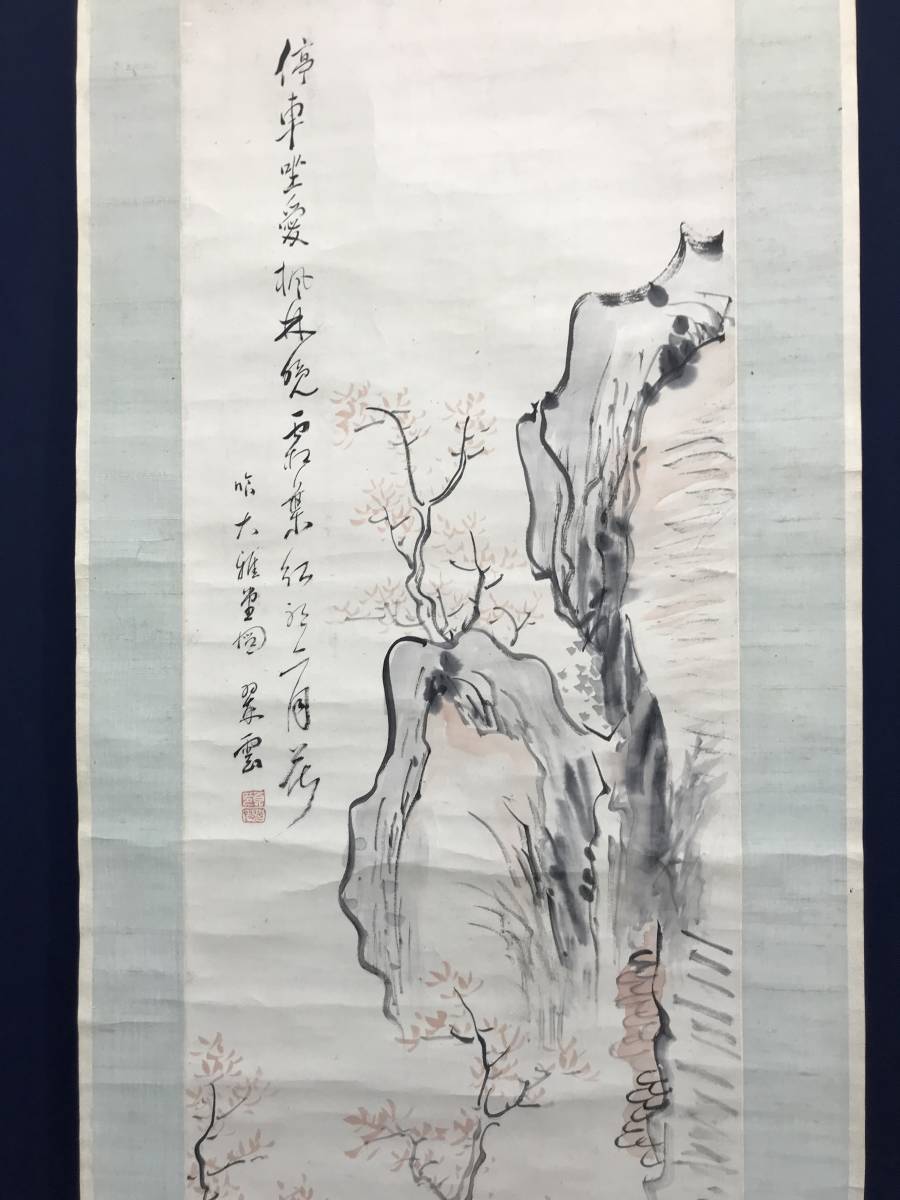 停車坐愛楓林晚霜葉紅於二月花
大雅堂圖 翠雲